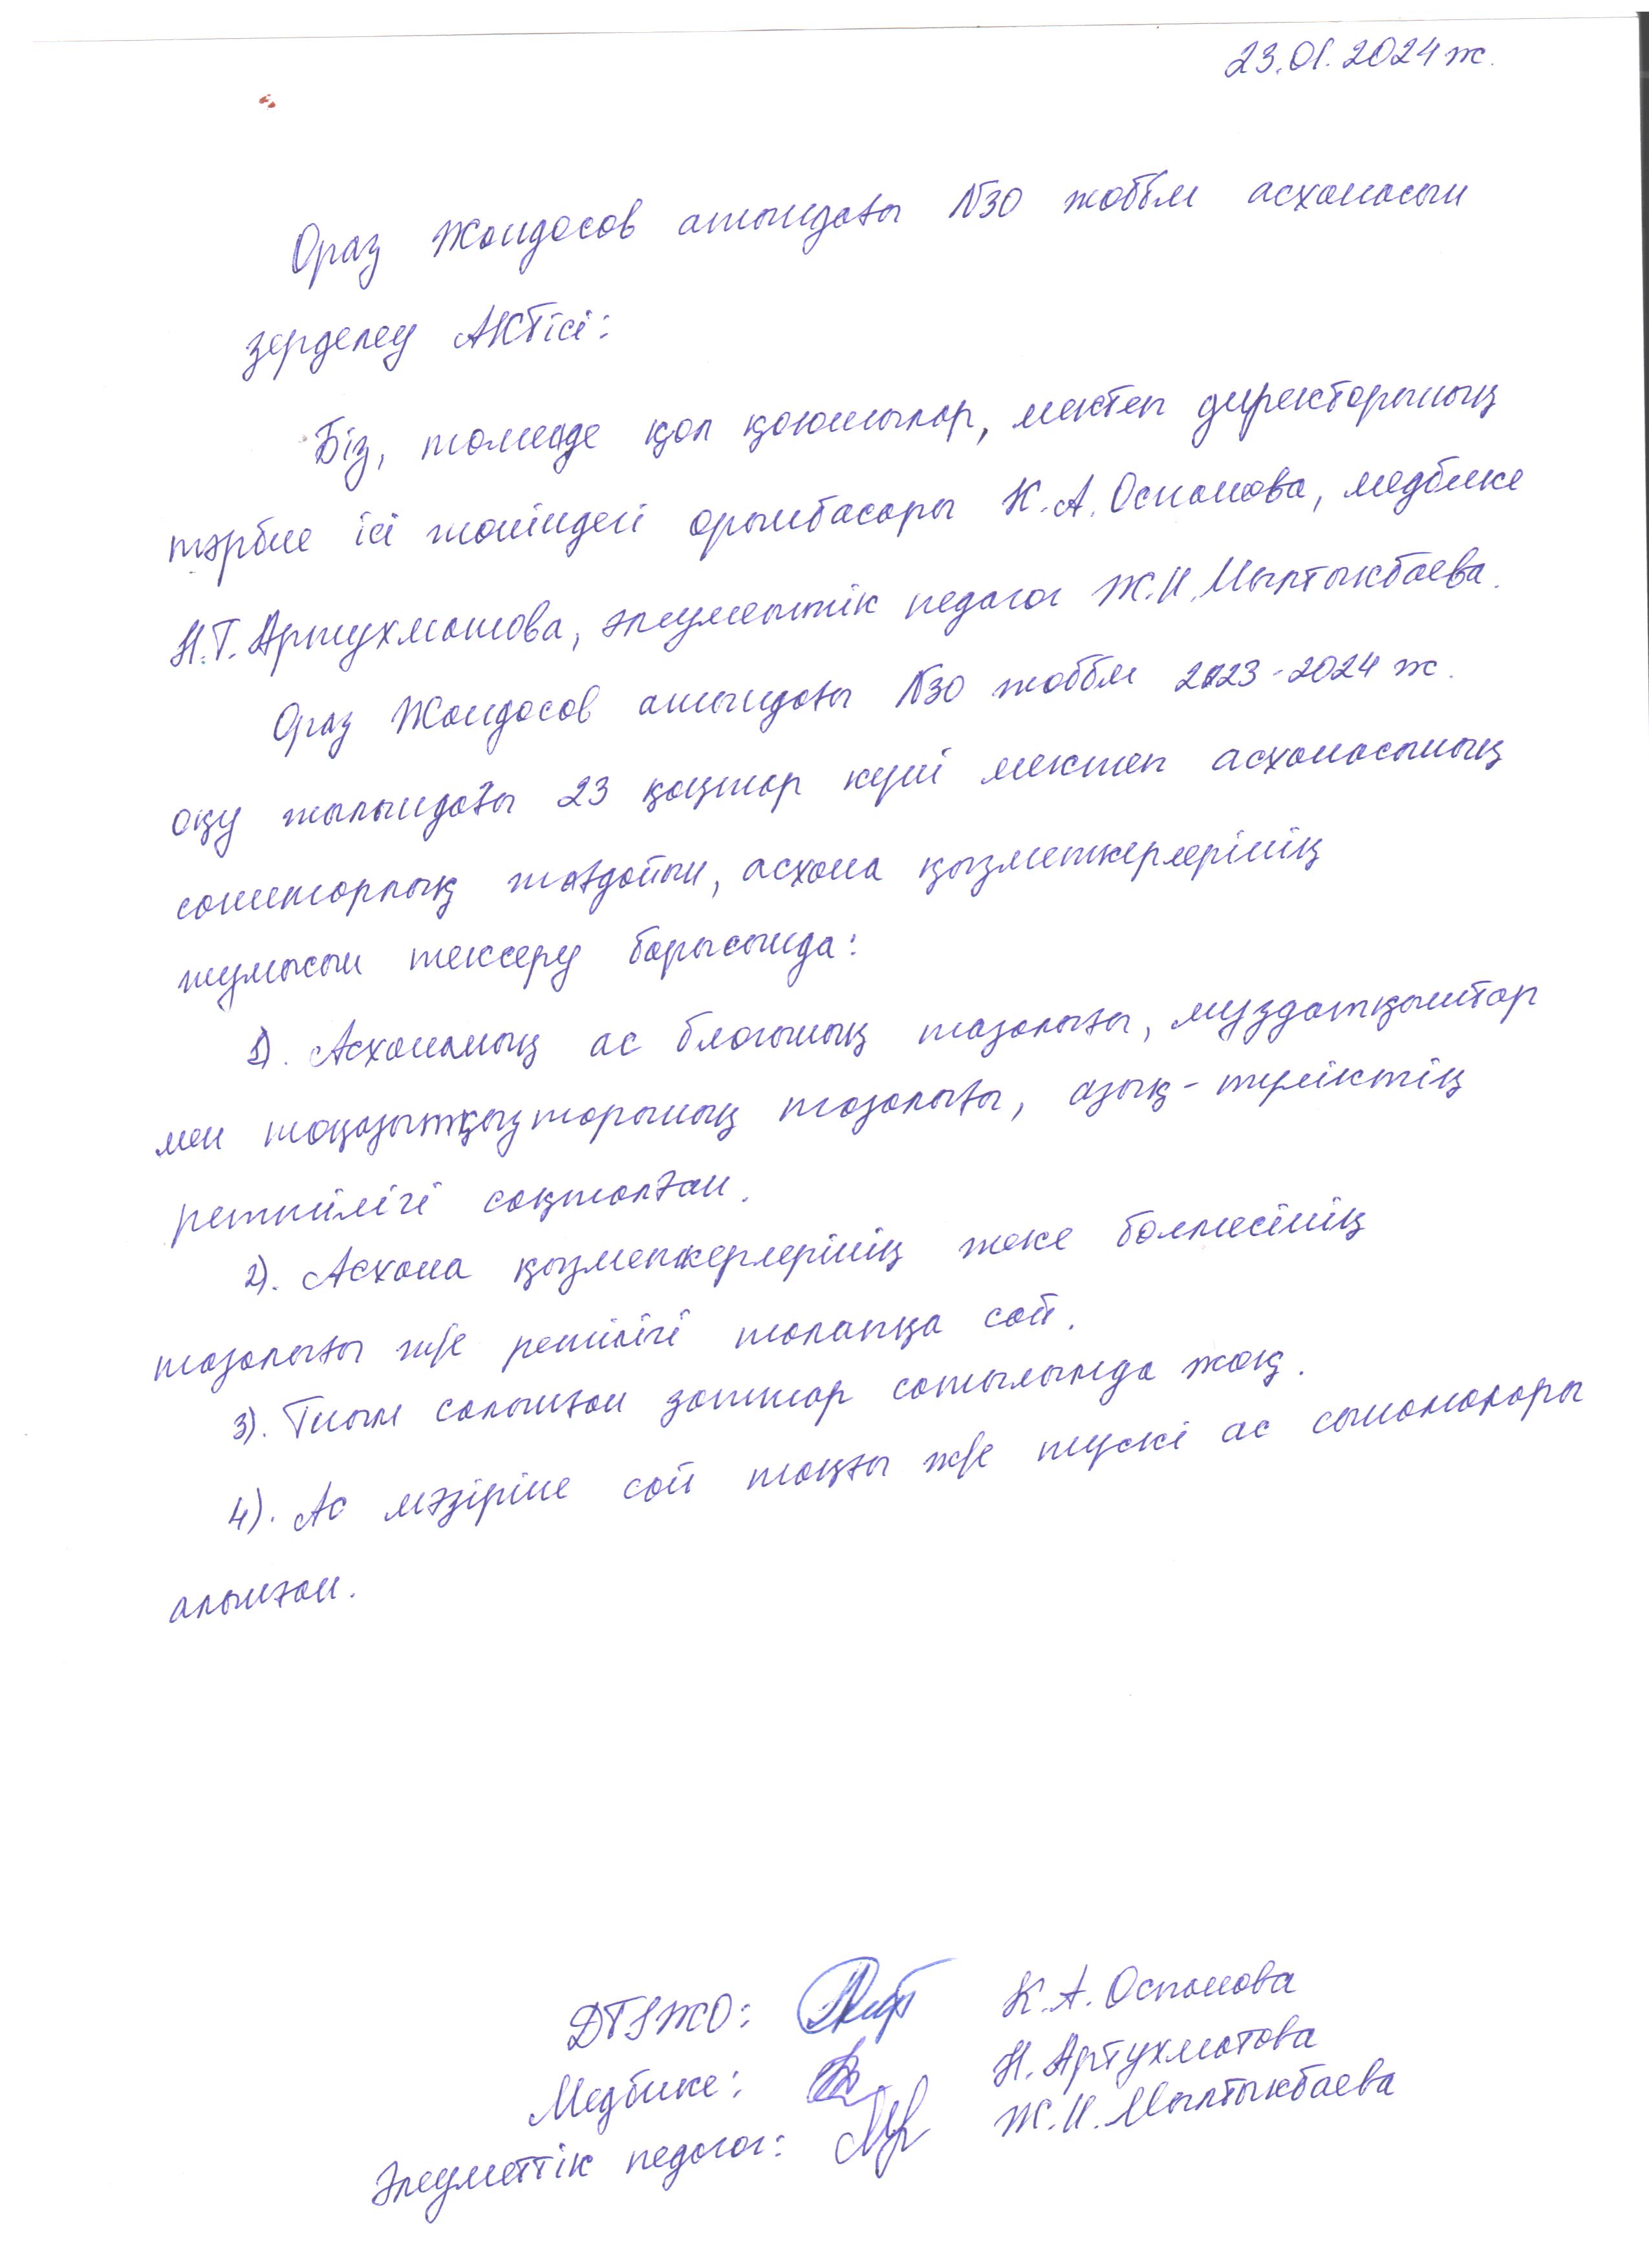 23.01.2024 ж.
Ораз Жандосов атындағы №30 жоббм асханасын
зерделеу АКТісі:
Біз, төменде қол қоюшылар, мектеп директорының
тәрбие ісі жөніндегі орынбасары К.А.Оспанова, медбике
Н.Т.Артухматова, әлеуметтік педагог Ж.И.Мылтыкбаева.
Ораз Жандосов атындағы №30 жоббм 2023-2024 ж.
оқу жылындағы 23 қаңтар күні мектеп асханасының
санитарлық жағдайын, асхана қызметкерлерінің
жұмысын тексеру барысында:
1). Асхананың ас блогының тазалығы, мұздатқыштар
мен тоңазытқыштарының тазалығы, азық-түліктің
реттілігі сақталған.
2). Асхана қызметкерлерінің жеке бөлмесінің
тазалығы ж/е реттілігі талапқа сай.
3). Тиым салынған заттар сатылымда жоқ.
4). Ас мәзіріне сай таңғы ж/е түскі ас сынамалары
алынған.
ДТІЖО: К.А.Оспанова
Медбике: Н.Артухматова
Әлеуметтік педагог: Ж.И.Мылтыкбаева